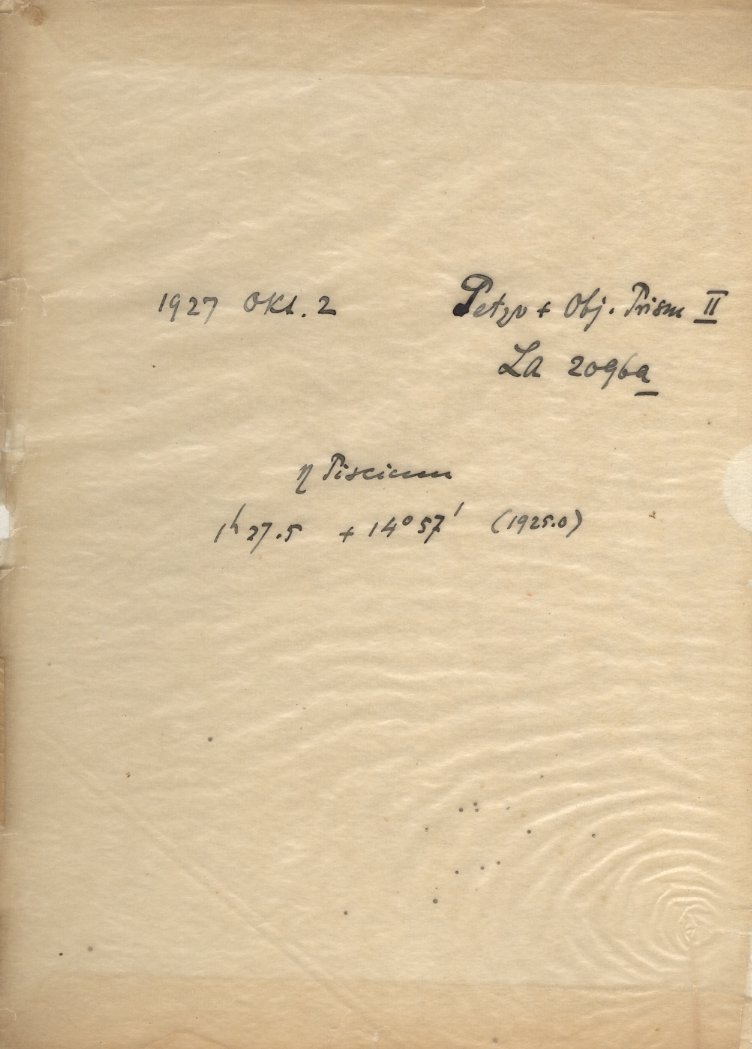 1927 Okt. 2 Petzv + Obj. Prism II
LA 2096a
η Piscium
1ʰ27.5 + 14°57' (1925.0)